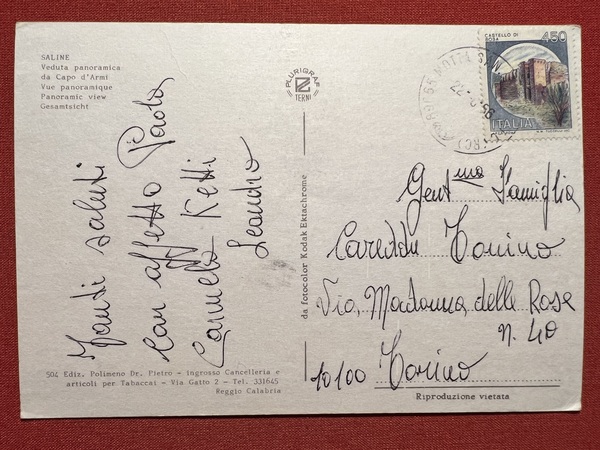 SALINE
Veduta panoramica
da Capo d'Armi
Vue panoramique
Panoramic view
Gesamtsicht
PLURIGRAF
TERNI
CASTELLO DI
BOSA
450
ITALIA
Tanti saluti
Con affetto Paola,
Carmelo Ketti
Leandro
da fotocolor Kodak Ektachrome
Gent.ma Famiglia
Tonino
Via, Madonna delle Rose
n. 40
10100 Torino
504 Ediz. Polimeno Dr. Pietro - Ingrosso Cancelleria e
articoli per Tabaccai - Via Gatto 2 - Tel. 331645
Reggio Calabria
Riproduzione vietata